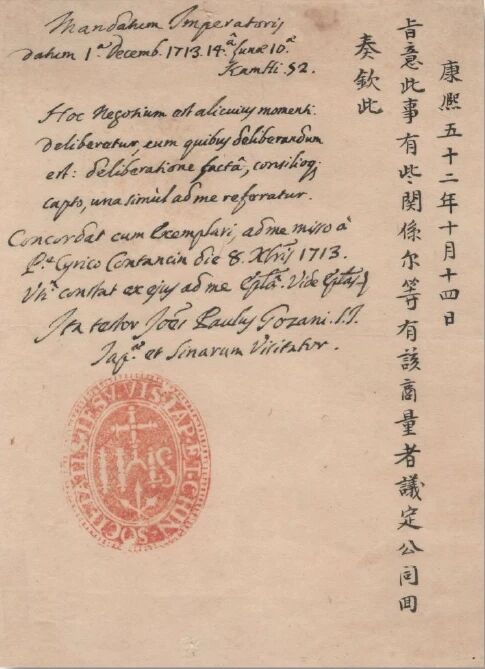 Mandatum Imperatoris
datum 1.ª Decemb. 1713. 14.ª Lunæ 10.ª
Kam Hi. 52.
Hoc Negotium est alicuius momenti.
deliberetur, cum quibus deliberandum
est: deliberatione factâ, consilioq;
capto, una simùl ad me referatur.
Concordat cum Exemplari, ad me misso à
P.e Cyrico Contancin die 8. Xbris 1713.
constat ex ejus ad me Epla. Vide
Ita testor Joes Paulus Gozani. S.J.
Jap.æ et Sinarum Visitator.
康熙五十二年十月十四日
旨意此事有些關係尔等有該商量者議定公同回
奏欽此
SOCIETATIS IESV VIS IAP ET CHIN
IHS